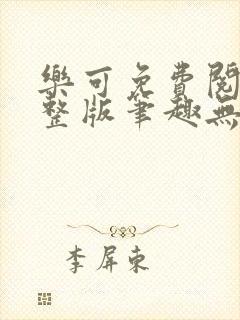 樂可免費閱
整版筆趣無
李屏東